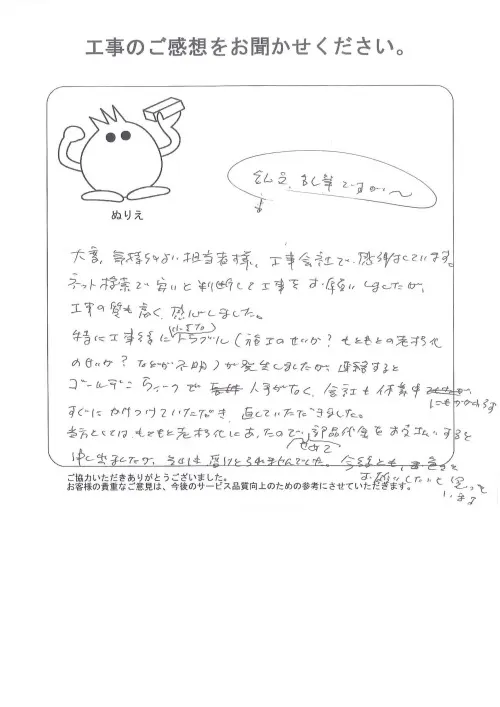 工事のご感想をお聞かせください。
ぬりえ
乱文、乱筆ですが〜
大変、気持ちよい担当者様、工事会社で感謝しています。
ネット検索で安いと判断して工事をお願いしましたが、
工事の質も高く、感心しました。
特に工事後に小さなトラブル(施工のせいか?もともとの老朽化
のせいか?などが不明)が発生しましたが、連絡すると
ゴールデンウィークで人手がなく、会社も休業中にもかかわらず
すぐにかけつけていただき、直していただきました。
当方としてはもともと老朽化にあったので、せめて部品代金をお支払いすると
申し出ましたが、受け取られませんでした。今後とも、
お願いしたいと思って
います
ご協力いただきありがとうございました。
お客様の貴重なご意見は、今後のサービス品質向上のための参考にさせていただきます。